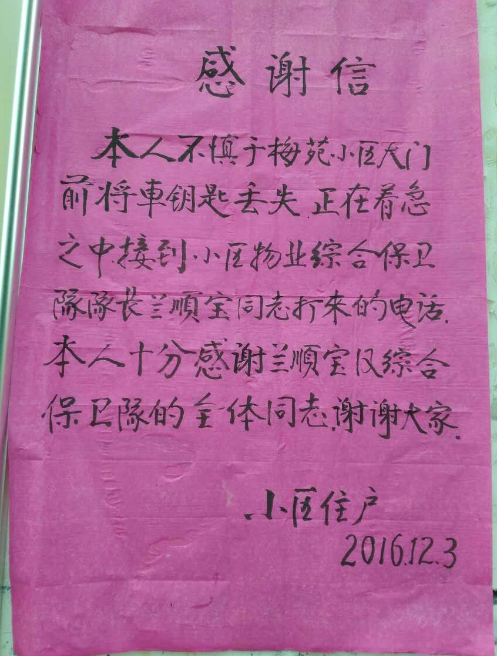 感谢信
本人不慎于梅苑小区大门
前将車钥匙丢失.正在着急
之中接到小区物业综合保卫
隊隊长兰順宝同志打来的电话.
本人十分感谢兰順宝及综合
保卫隊的全体同志.谢谢大家.
小区住户
2016.12.3